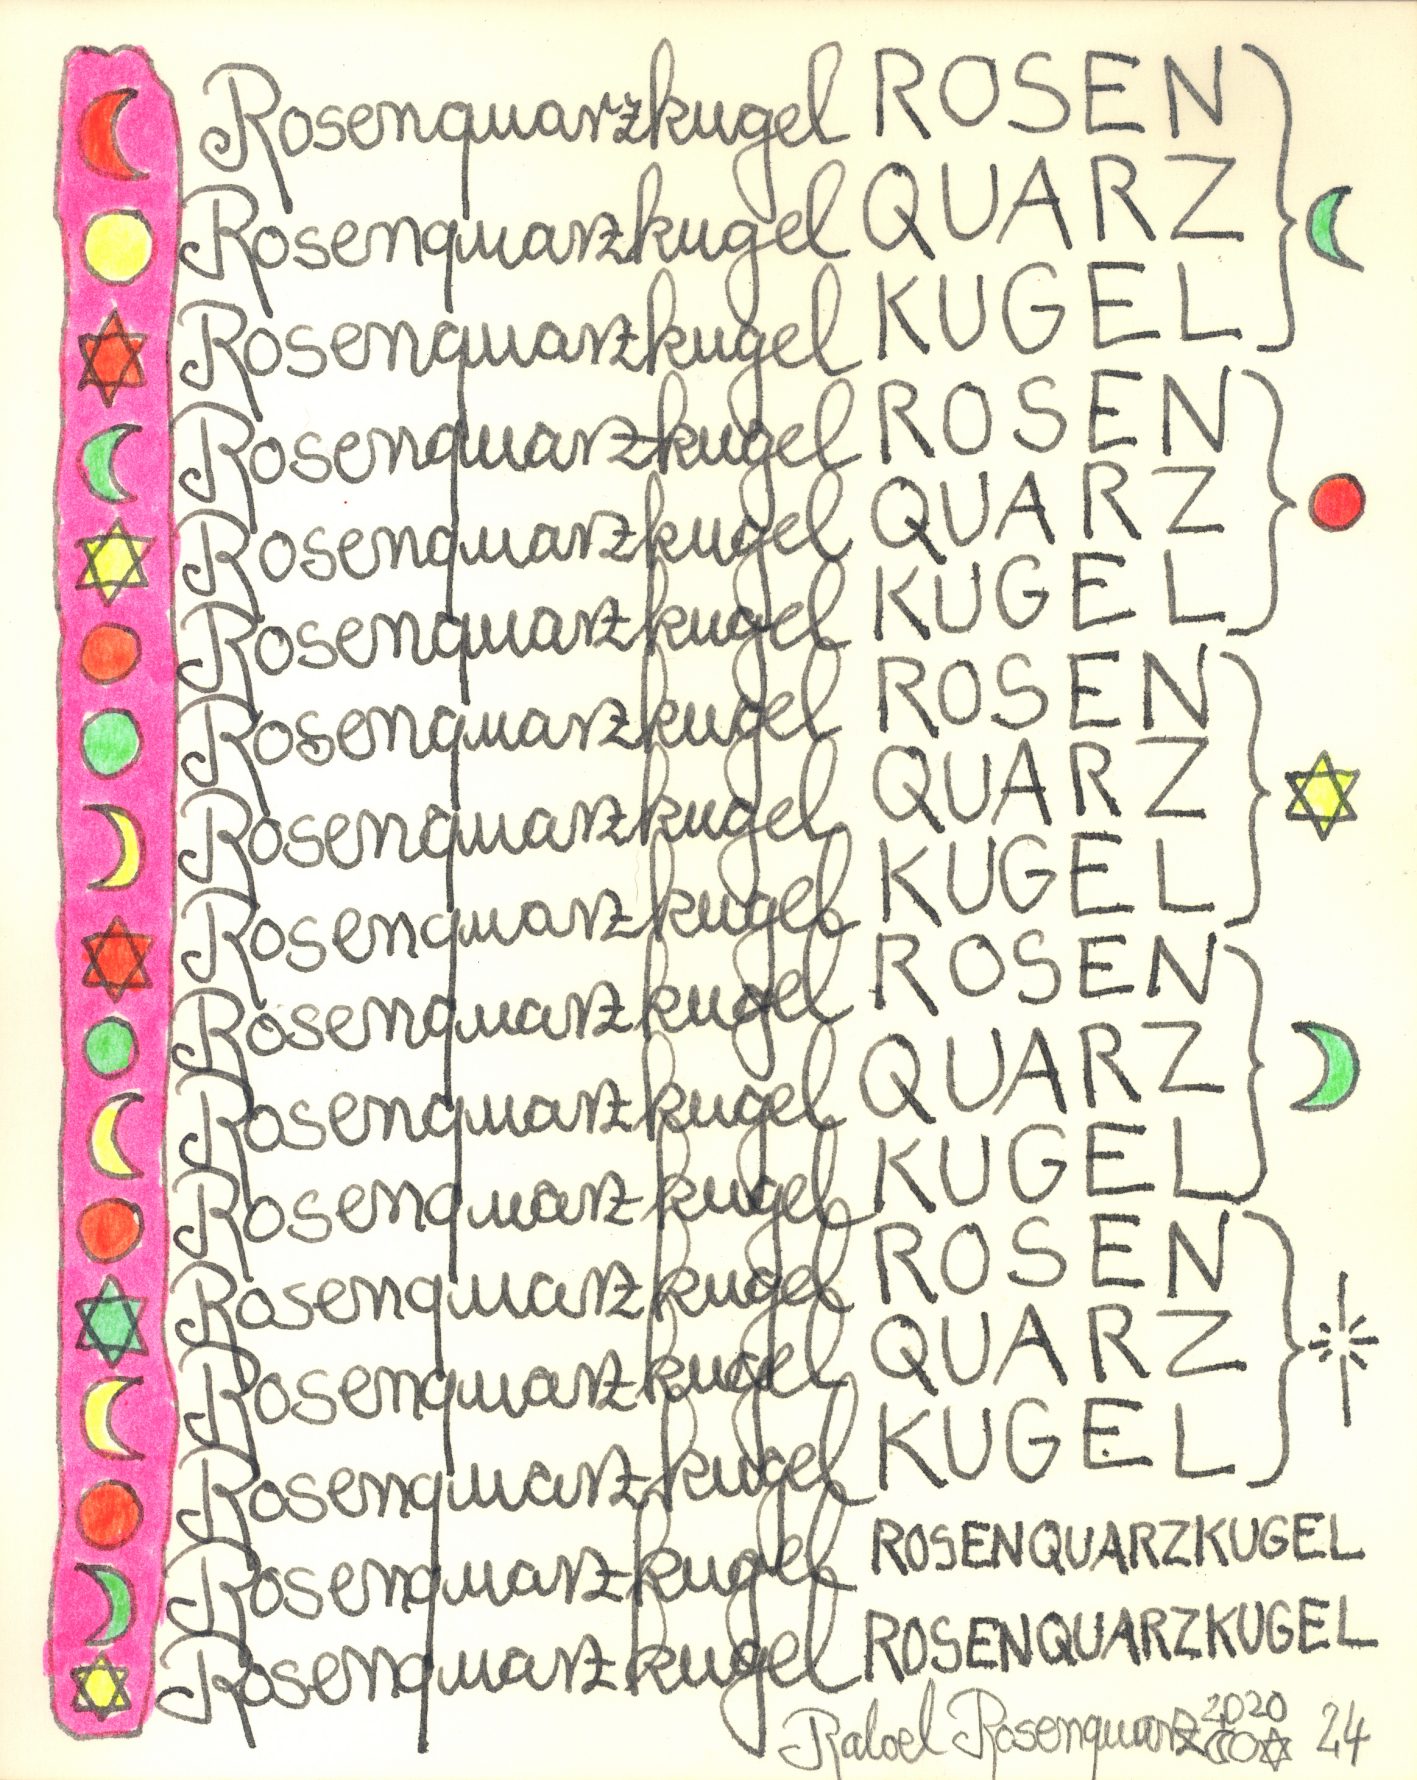 Rosenquarzkugel ROSEN
Rosenquarzkugel QUARZ
Rosenquarzkugel KUGEL
Rosenquarzkugel ROSEN
Rosenquarzkugel QUARZ
Rosenquarzkugel KUGEL
Rosenquarzkugel ROSEN
Rosenquarzkugel QUARZ
Rosenquarzkugel KUGEL
Rosenquarzkugel ROSEN
Rosenquarzkugel QUARZ
Rosenquarzkugel KUGEL
Rosenquarzkugel ROSEN
Rosenquarzkugel QUARZ
Rosenquarzkugel KUGEL
Rosenquarzkugel ROSENQUARZKUGEL
Rosenquarzkugel ROSENQUARZKUGEL
Rosenquarz 2020 24